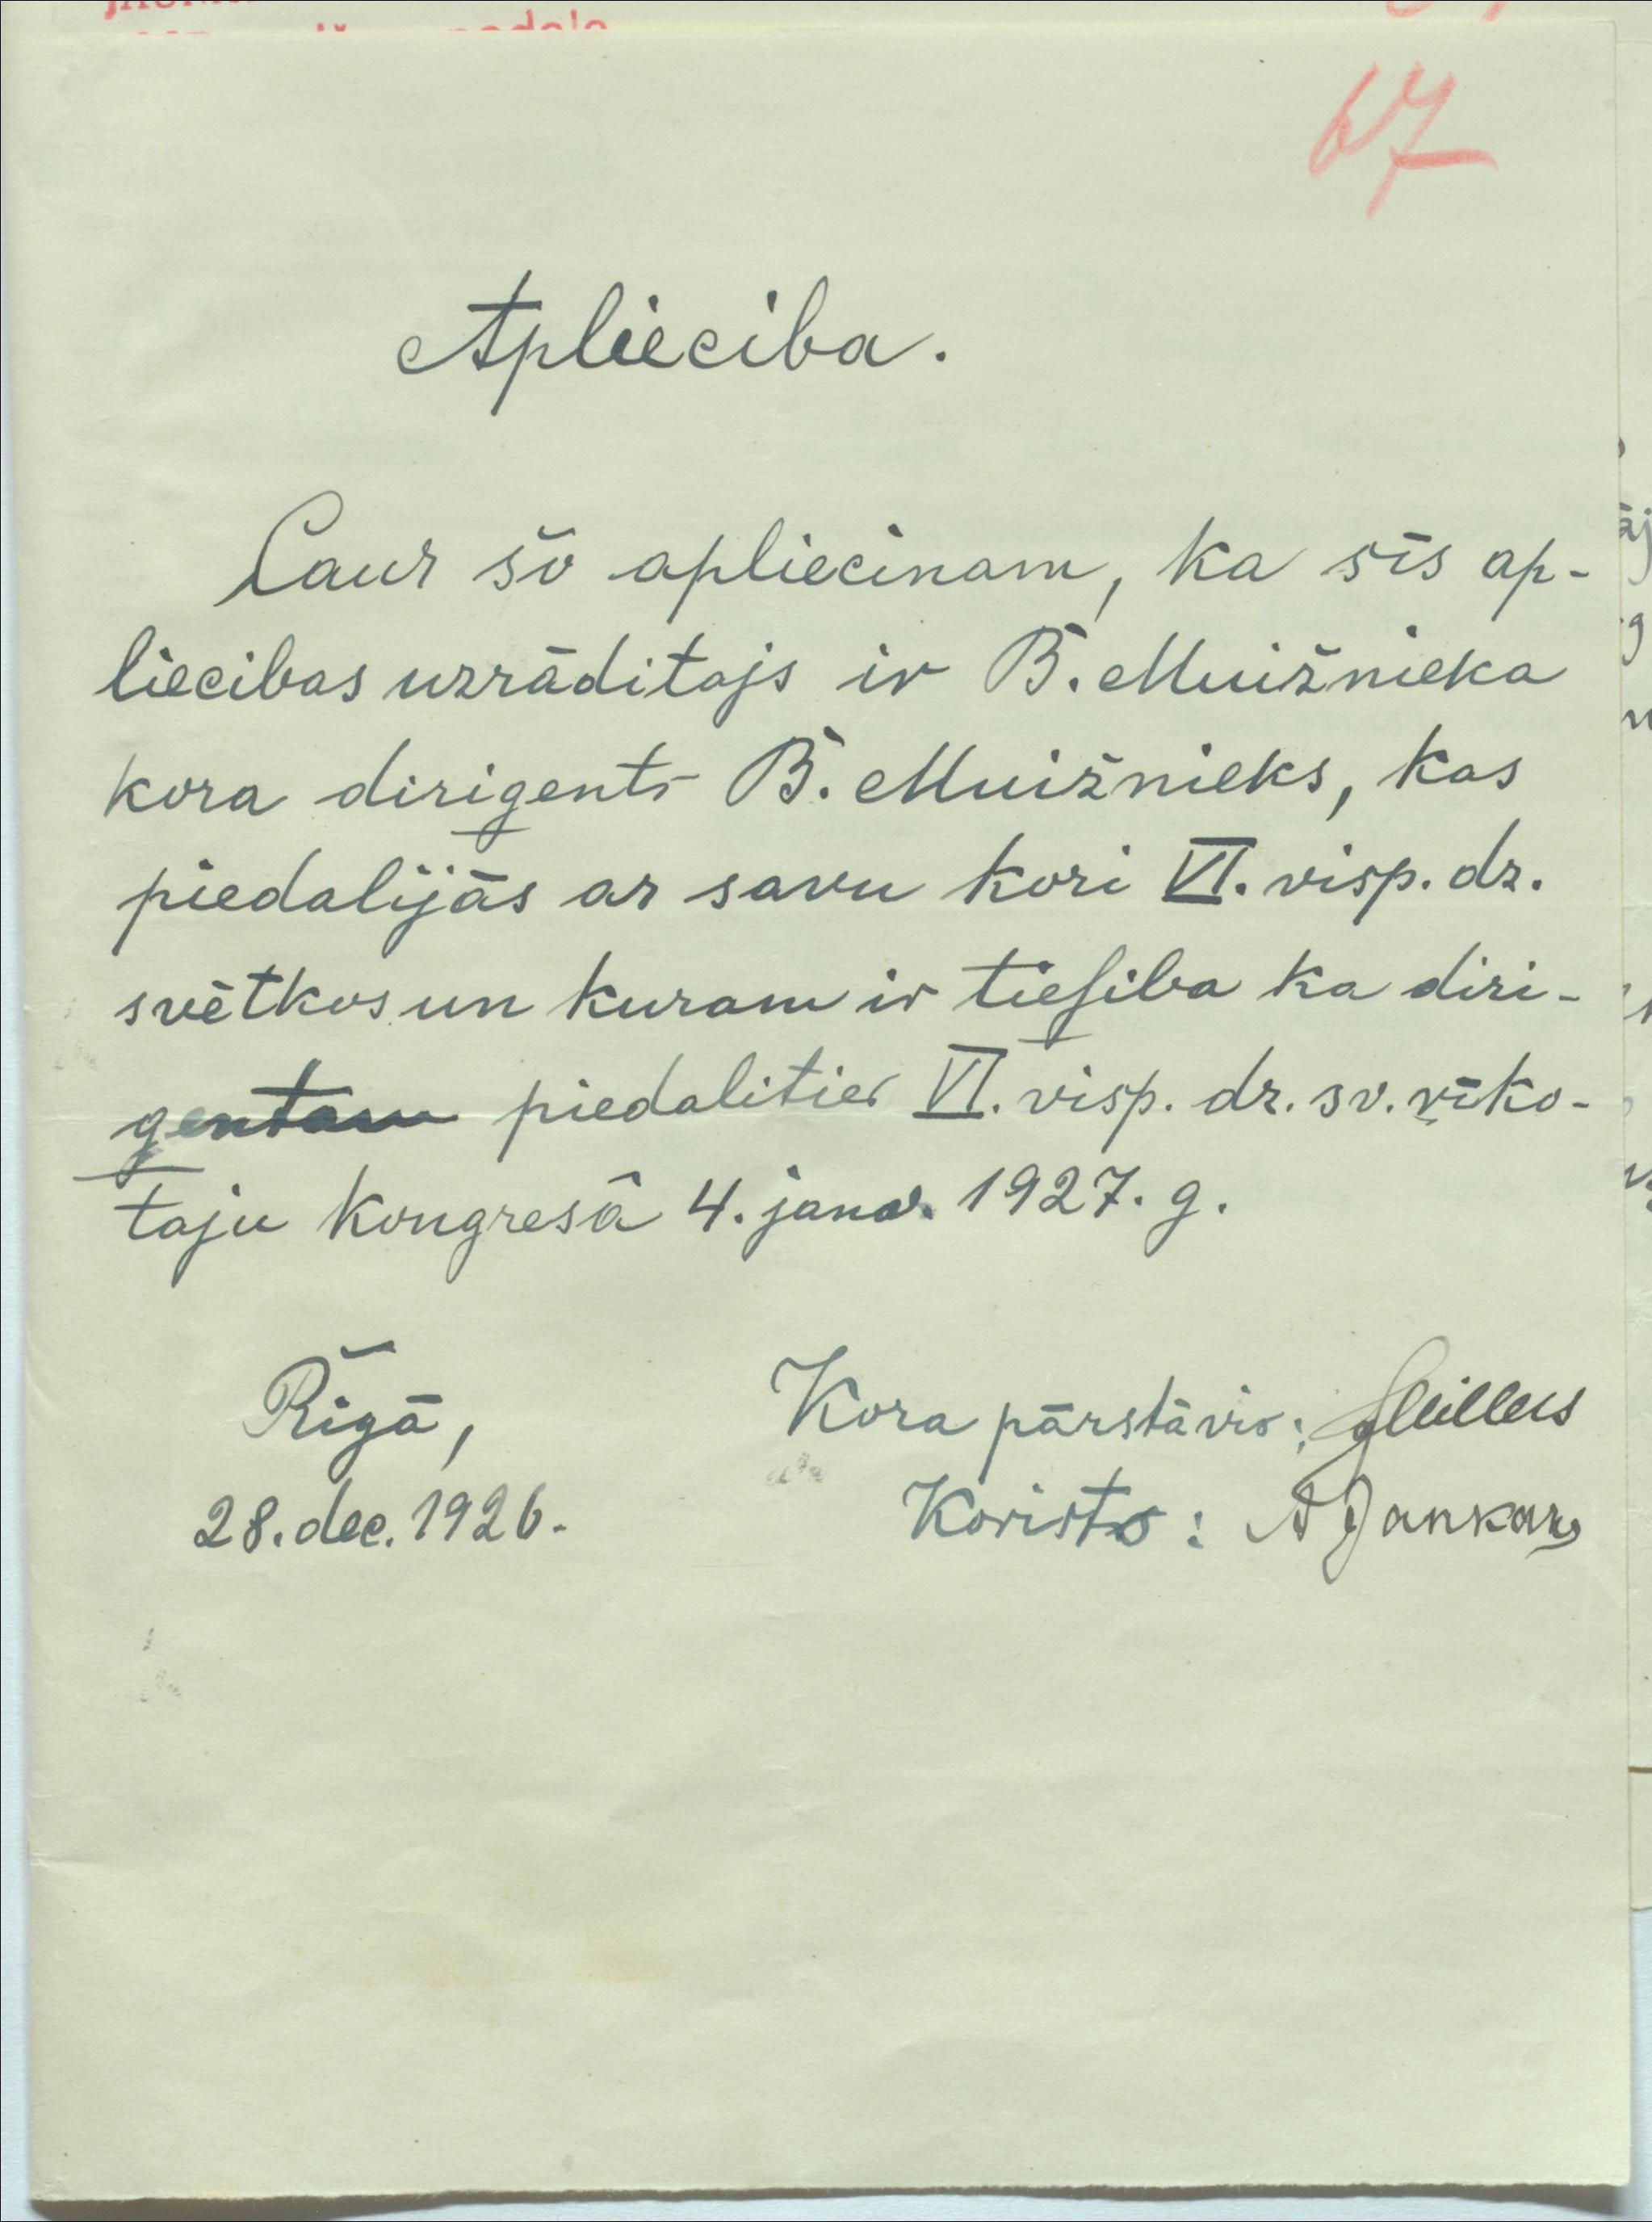 67
Apliecība.
Caur šo apliecinam, ka šis ap-
liecibas uzrāditajs ir B. Muižnieka
kora dirigents B. Muižnieks, kas
piedalijās ar savu kori VI. visp. dz.
svētkos un kuram ir tiesiba ka diri-
gentam piedalities VI. visp. dz. sv. rīko-
taju kongresā 4. janv. 1927. g.
Rīgā,
Kora pārstāvis:
28. dec. 1926.
Korists: A Jankavs